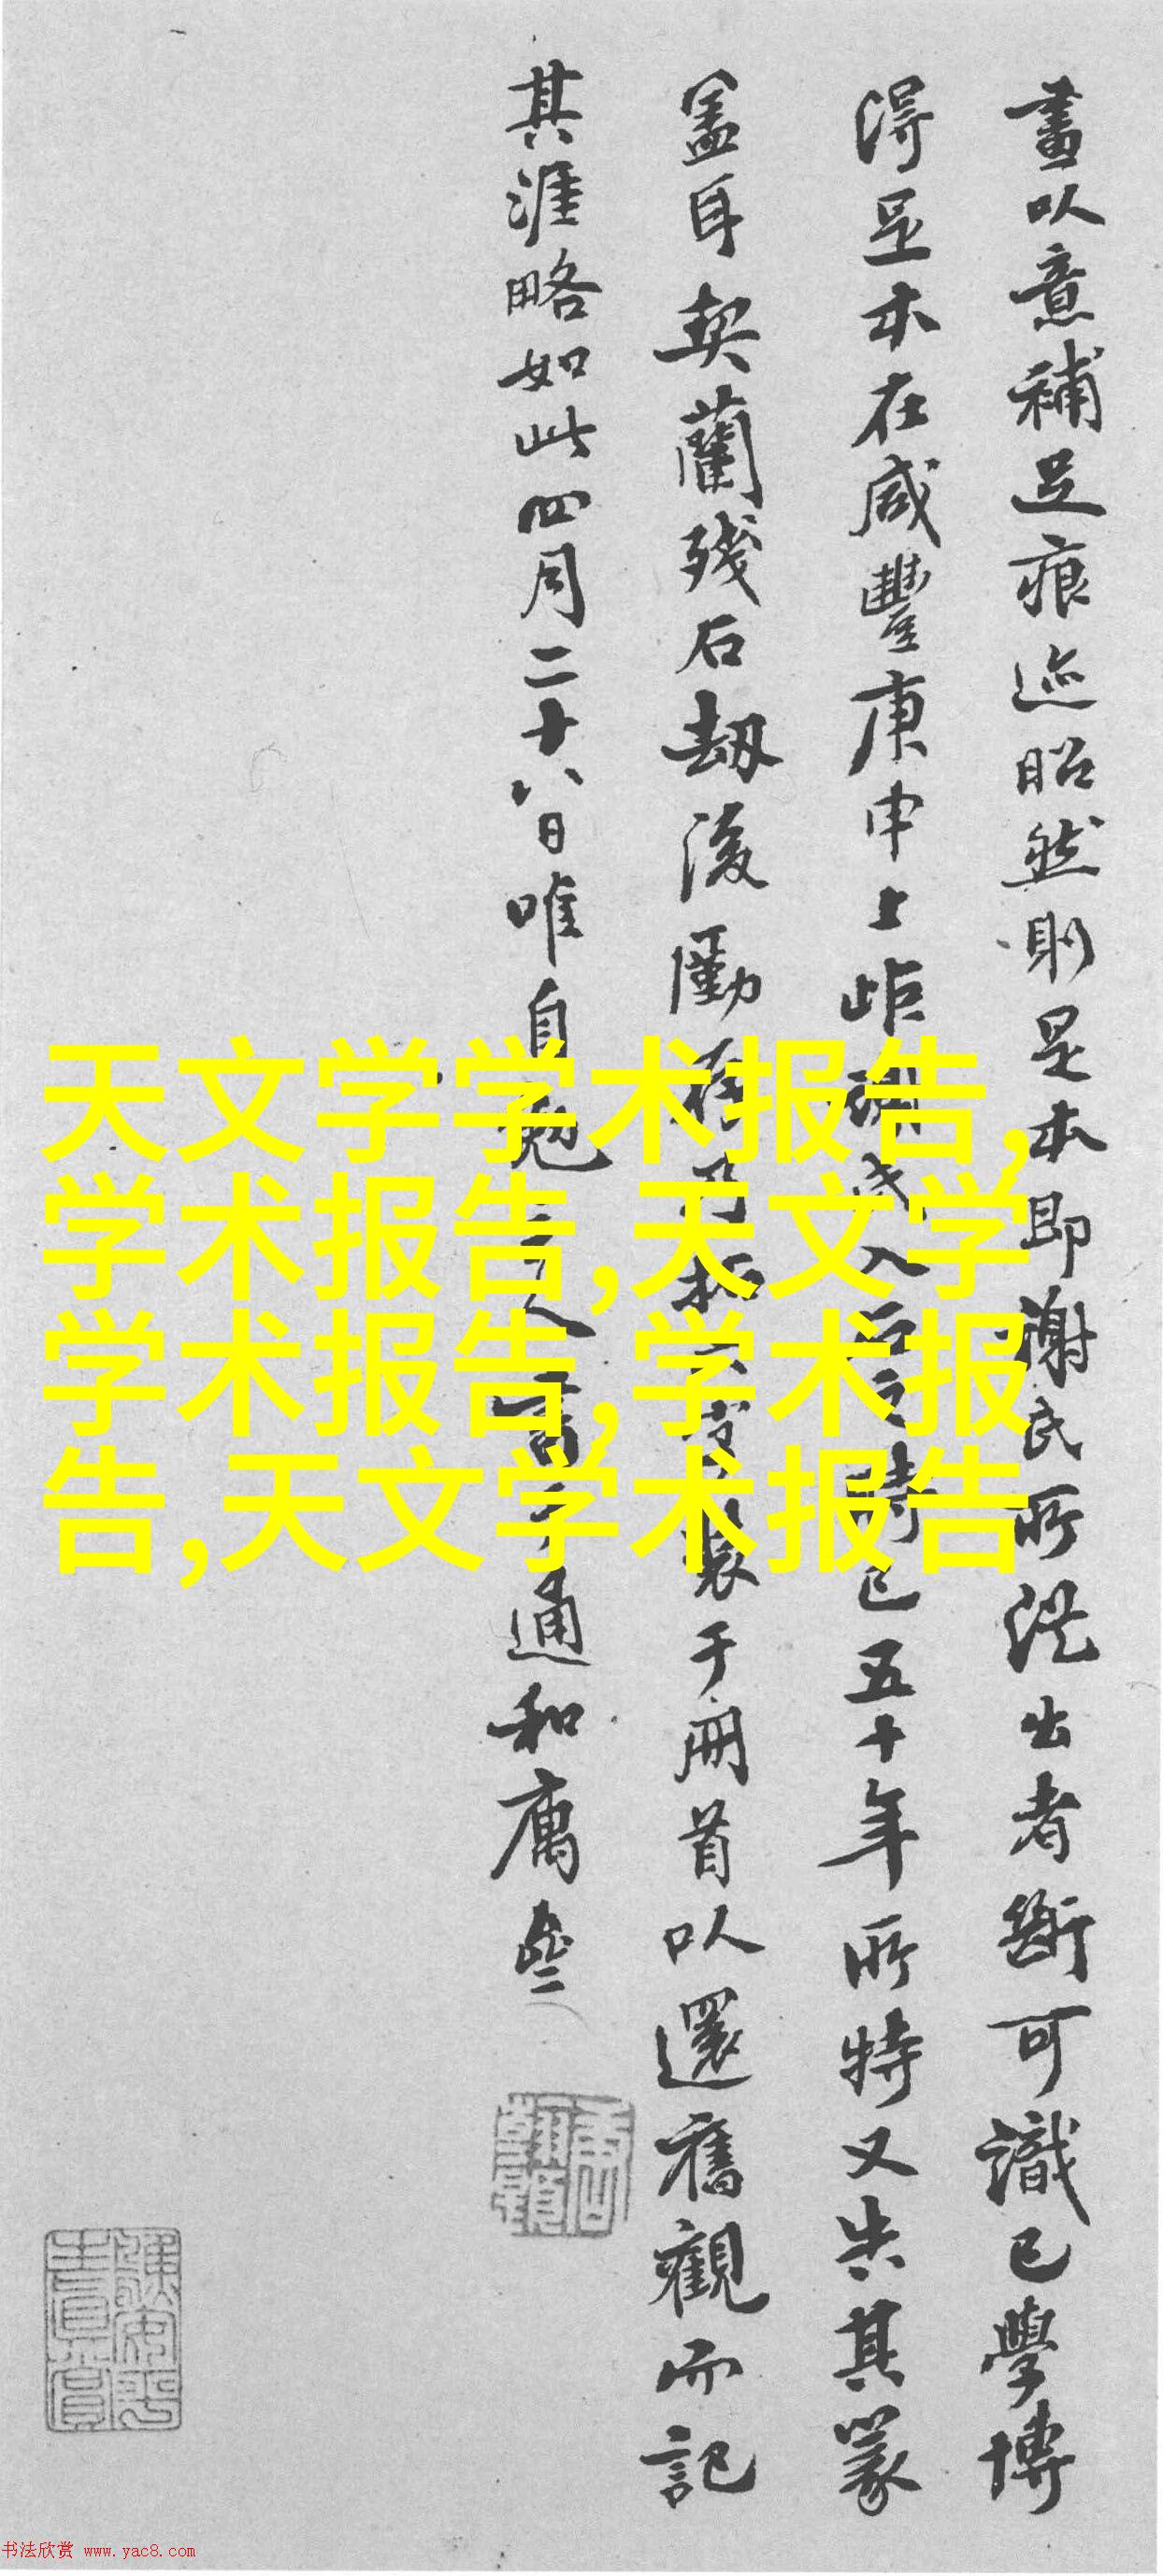 畫以意補足痕迹昭然則是本即謝氏所從出者斷可識已學博
得足本在咸豐庚申上距淵成入石之時已五十年所特又失其篆
蓋耳契蘭殘石劫後勵存乃拓裝于冊首以還舊觀而記
其涯略如此四月二十八日唯自勉人書于通和
天文学学术报告,
学术报告,天文学
学术报告,学术报
告,天文学术报告
书法欣赏 www.yac8.com